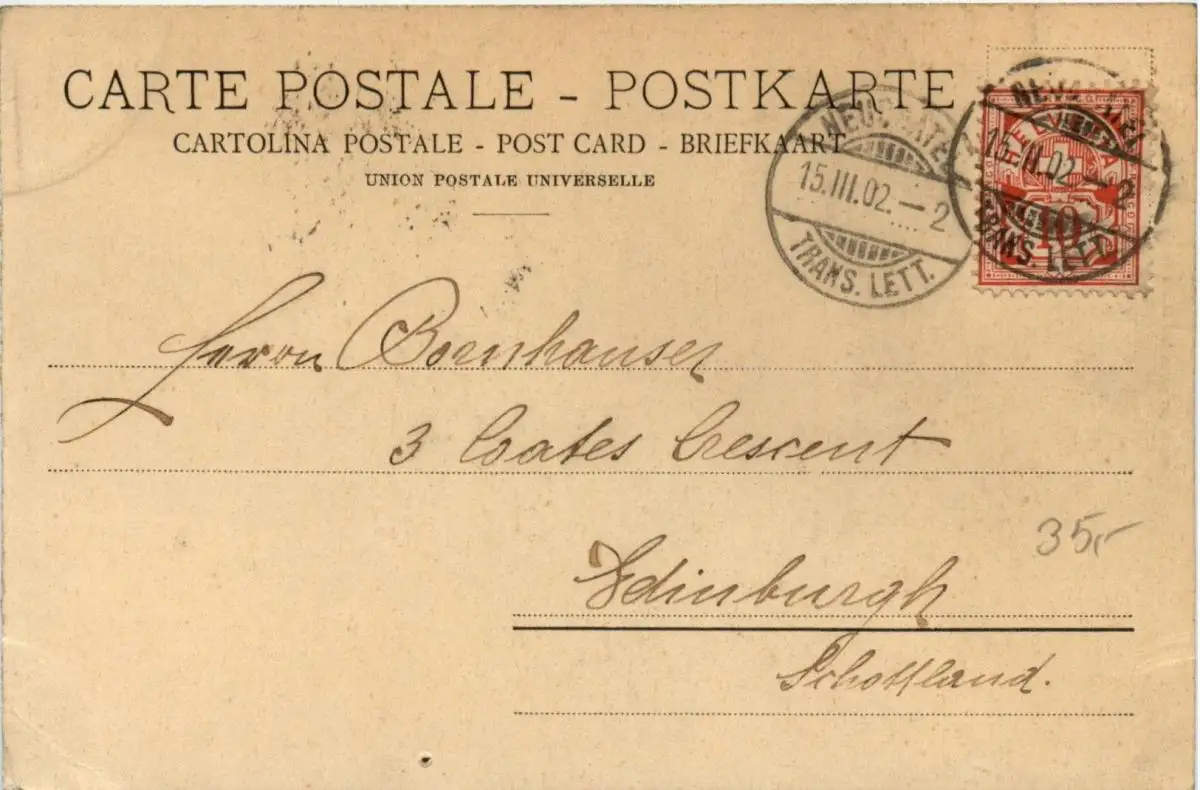 CARTE POSTALE - POSTKARTE
CARTOLINA POSTALE - POST CARD - BRIEFKAART
UNION POSTALE UNIVERSELLE
15.III.02.—2
TRANS. LETT.
15.III.02.—2
TRANS. LETT.
10
Herrn Bornhauser
3 Coates Crescent
35,-
Edinburgh
Schottland.